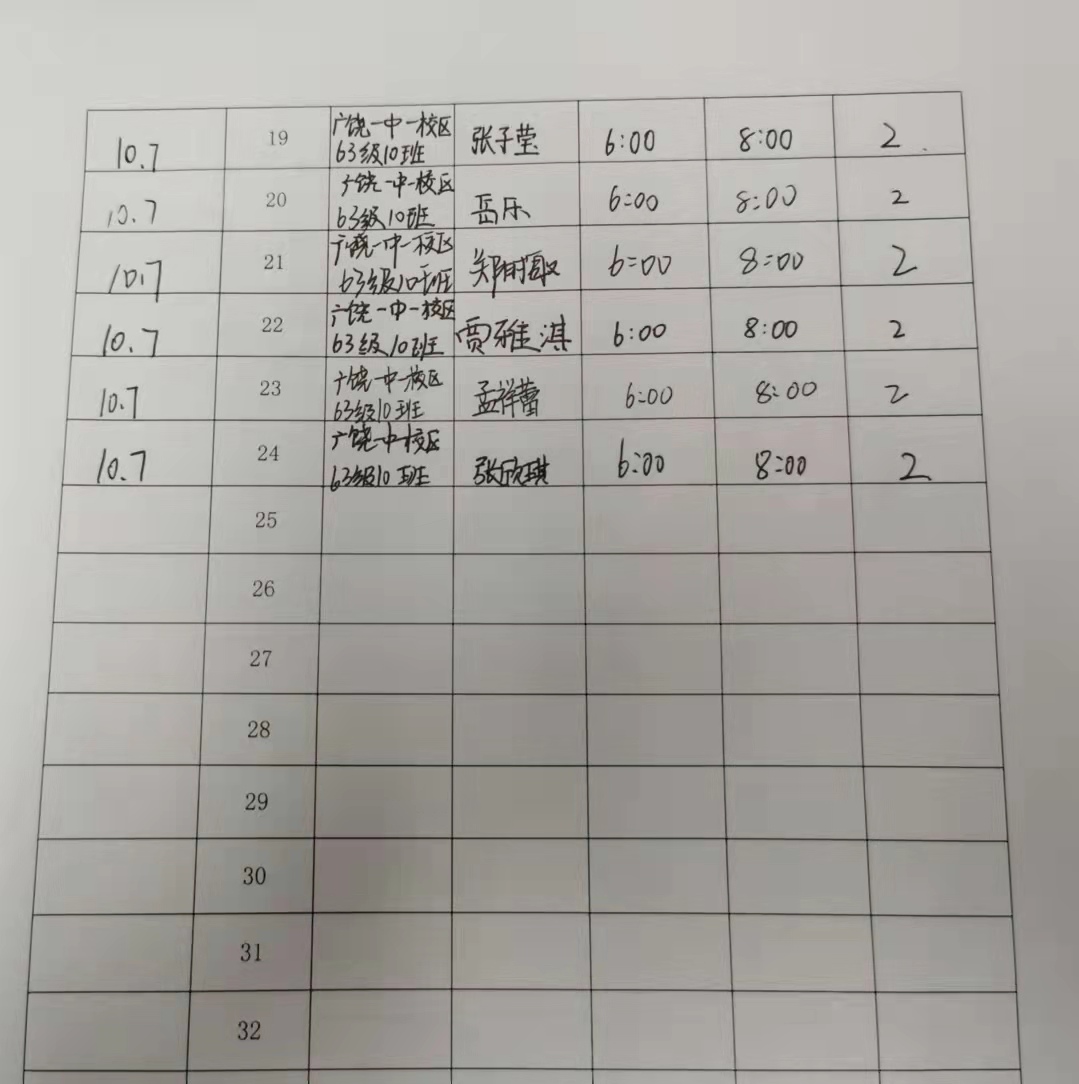 10.7 19 广饶一中一校区 63级10班 张子莹 6:00 8:00 2
10.7 20 广饶一中一校区 63级10班 岳乐 6:00 8:00 2
10.7 21 广饶一中一校区 63级10班 6:00 8:00 2
10.7 22 广饶一中一校区 63级10班 贾雅淇 6:00 8:00 2
10.7 23 广饶一中一校区 63级10班 孟祥蕾 6:00 8:00 2
10.7 24 广饶一中校区 63级10班 张欣琪 6:00 8:00 2
25
26
27
28
29
30
31
32